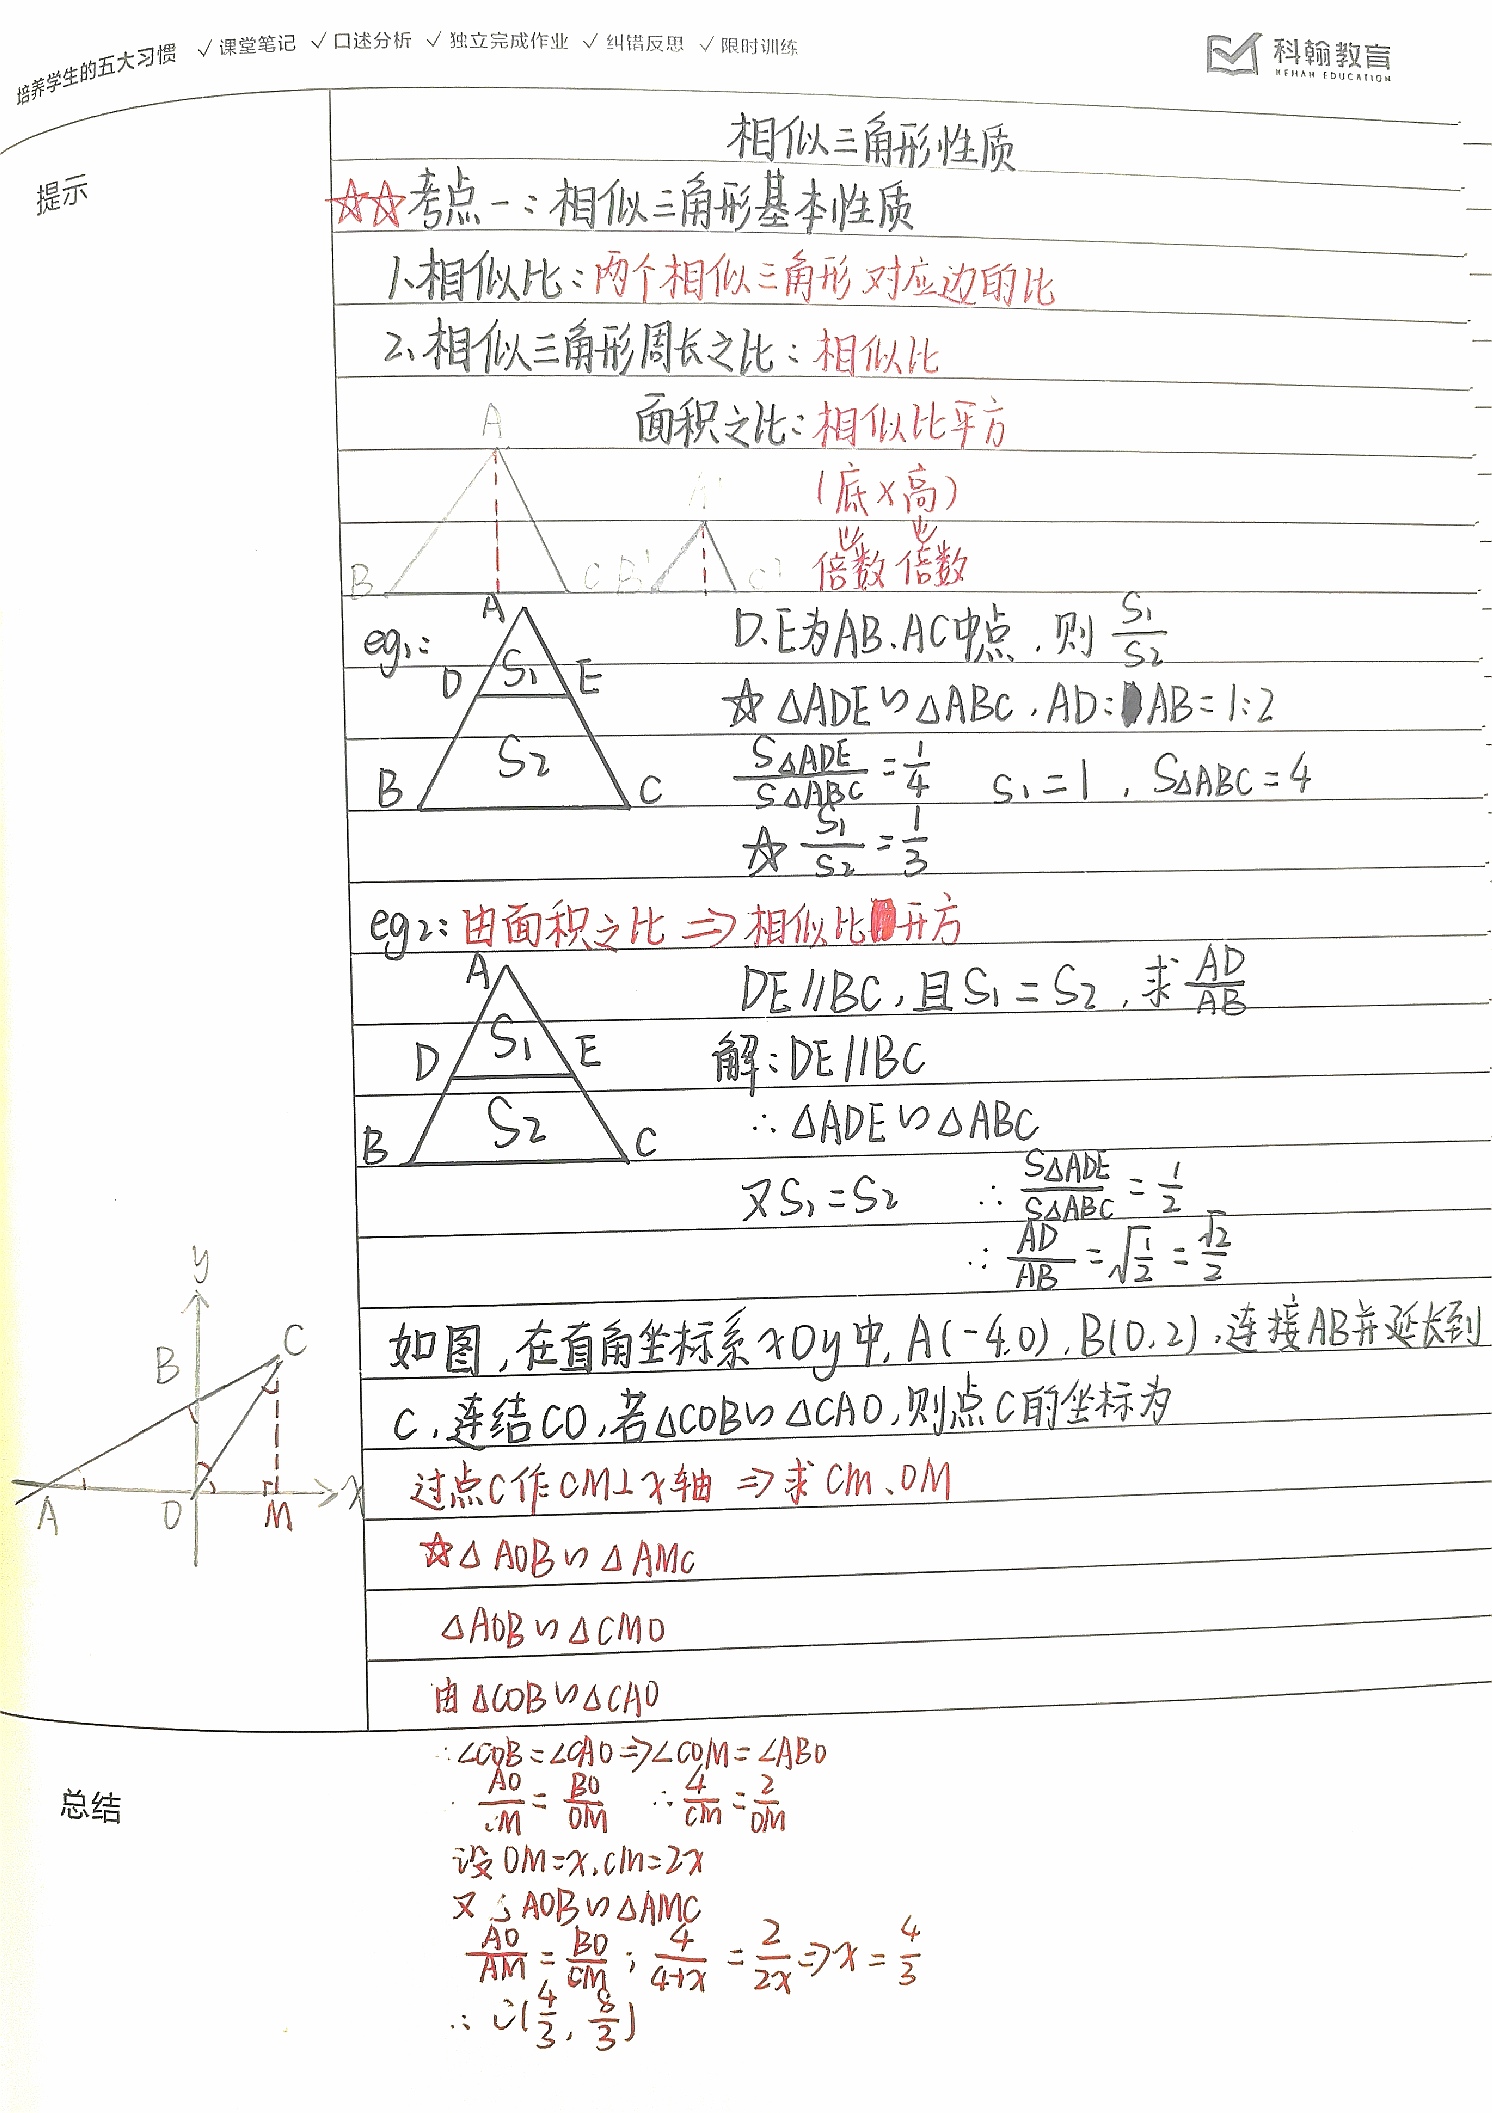 培养学生的五大习惯 ✓课堂笔记 ✓口述分析 ✓独立完成作业 ✓纠错反思 ✓限时训练
科翰教育
KEHAN EDUCATION
提示
相似三角形性质
☆☆考点一:相似三角形基本性质
1、相似比:两个相似三角形对应边的比
2、相似三角形周长之比:相似比
面积之比:相似比平方
(底×高)
倍数 倍数
A
B C
A'
B' C'
eg1:
A
D S1 E
S2
B C
D、E为AB、AC中点,则 S1/S2
☆ △ADE∽△ABC,AD:AB=1:2
S△ADE/S△ABC=1/4 S1=1,S△ABC=4
☆ S1/S2=1/3
eg2:由面积之比⇒相似比开方
A
D S1 E
S2
B C
DE//BC,且S1=S2,求AD/AB
解:DE//BC
∴△ADE∽△ABC
又S1=S2 ∴S△ADE/S△ABC=1/2
∴AD/AB=√1/2=√2/2
y
B C
A O M x
如图,在直角坐标系xOy中,A(-4,0),B(0,2),连接AB并延长到
C,连结CO,若△COB∽△CAO,则点C的坐标为
过点C作CM⊥x轴⇒求CM、OM
☆△AOB∽△AMC
△AOB∽△CMO
由△COB∽△CAO
∴∠COB=∠CAO⇒∠COM=∠ABO
总结
∴AO/CM=BO/OM ∴4/CM=2/OM
设OM=x,CM=2x
又△AOB∽△AMC
AO/AM=BO/CM;4/4+x=2/2x⇒x=4/3
∴C(4/3,8/3)